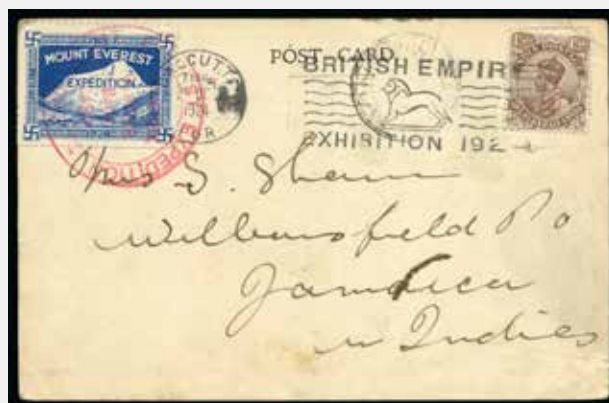 MOUNT EVEREST
EXPEDITION
1924
CUTT
POST CARD
BRITISH EMPIR
EXHIBITION 192
EXPEDITIO
S. Shaw
Williamsfield Po
Jamaica
W Indies